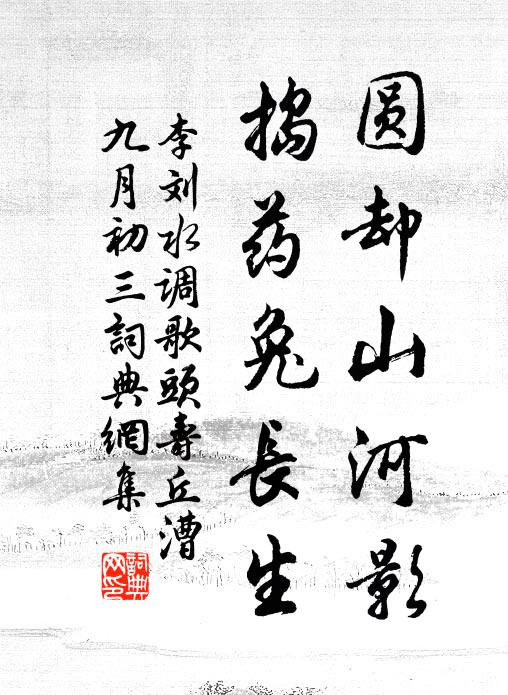 圆却山河影
捣药兔长生
李刘水调歌头寿丘漕
九月初三詞典網集
詞典网印